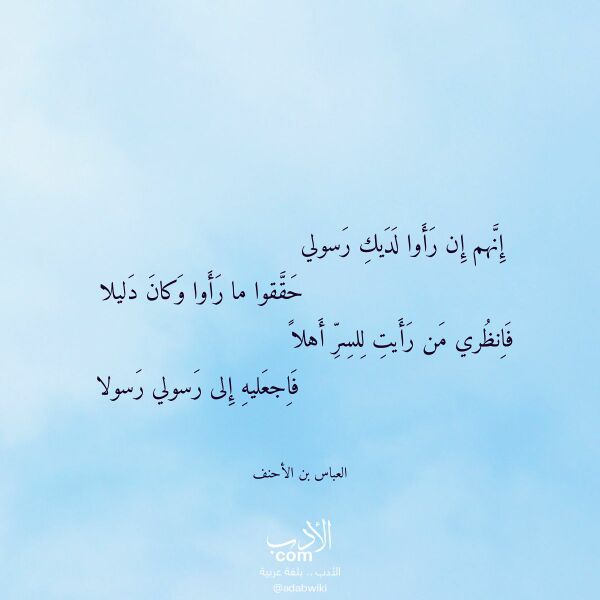 إِنَّهم إِن رَأَوا لَدَيكِ رَسولي
حَقَّقوا ما رَأَوا وَكانَ دَليلا
فَاِنظُري مَن رَأَيتِ لِلسِرِّ أَهلاً
فَاِجعَليهِ إِلى رَسولي رَسولا
العباس بن الأحنف
الأدب
com
الأدب .. بلغة عربية
@adabwiki